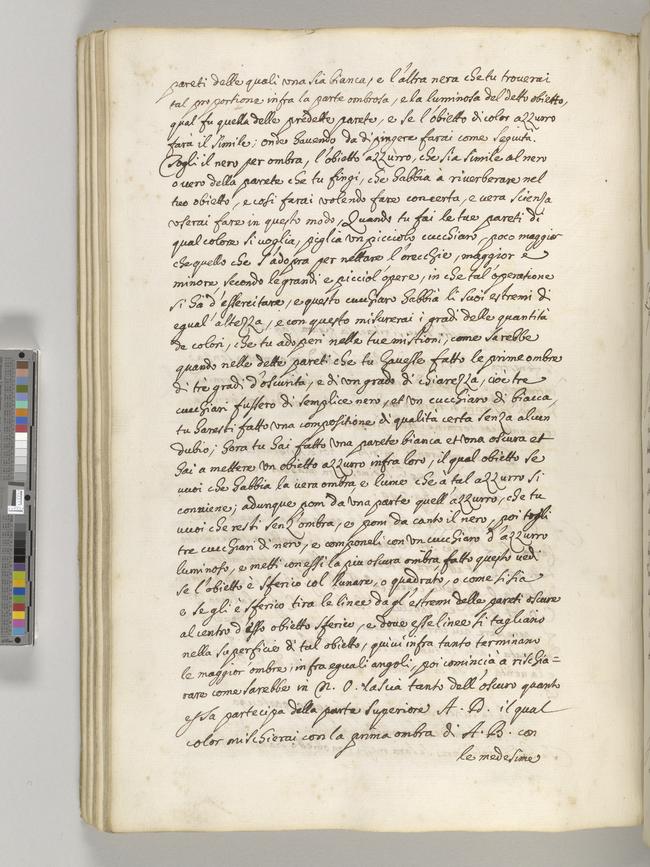 pareti delle quali una sia bianca, e l'altra nera che tu trouerai
tal proportione infra la parte ombrosa, e la luminosa del detto obietto,
qual fu quella delle predette parete, e se l'obietto di color azzurro
farà il simile; onde hauendo da dipingere farai come seguita.
Togli il nero per ombra, l'obietto azzurro, che sia simile al nero
o uero della parete che tu fingi, che habbia à riuerberare nel
tuo obietto, e cosi farai uolendo fare con certa, e uera scienza
userai fare in questo modo, Quando tu fai le tue pareti di
qual colore si uoglia, piglia un picciolo cucchiaro, poco maggior
che quello che s'adopra per nettare l'orecchie, maggior e
minore secondo le grandi e picciol'opere, in che tal'operatione
si ha d'essercitare, e questo cucchiaro habbia li suoi estremi di
egual'altezza, e con questo misurerai i gradi delle quantità
de colori, che tu adoperi nelle tue mistioni, come sarebbe
quando nelle dette pareti che tu hauesse fatto le prime ombre
di tre gradi d'oscurità, e di un grado di chiarezza, cioè tre
cucchiari fussero di semplice nero, et un cucchiaro di biacca
tu haresti fatto una compositione di qualità certa senza alcun
dubio; hora tu hai fatto una parete bianca et una oscura et
hai a mettere un obietto azzurro infra loro, il qual obietto se
uuoi che habbia la uera ombra e lume che à tal azzurro si
conuiene; adunque pom da una parte quell'azzurro, che tu
uuoi che resti senz'ombra, e pom da canto il nero, poi togli
tre cucchiari di nero, e componeli con un cucchiaro d'azzurro
luminoso, e metti con essi la piu oscura ombra fatto questo uedi
se l'obietto è sferico col lunare, o quadrato, o come si sia
e se gli è sferico tira le linee da gl'estremi delle pareti oscure
al centro d'esso obietto sferico, e doue esse linee si tagliano
nella superficie di tal obietto, quiui infra tanto terminano
le maggior'ombre, infra eguali angoli, poi comincia à rischia=
rare come sarebbe in N. O. lascia tanto dell'oscuro quanto
essa partecipa della parte superiore A. D. il qual
color mischierai con la prima ombra di A. B. con
le medesime